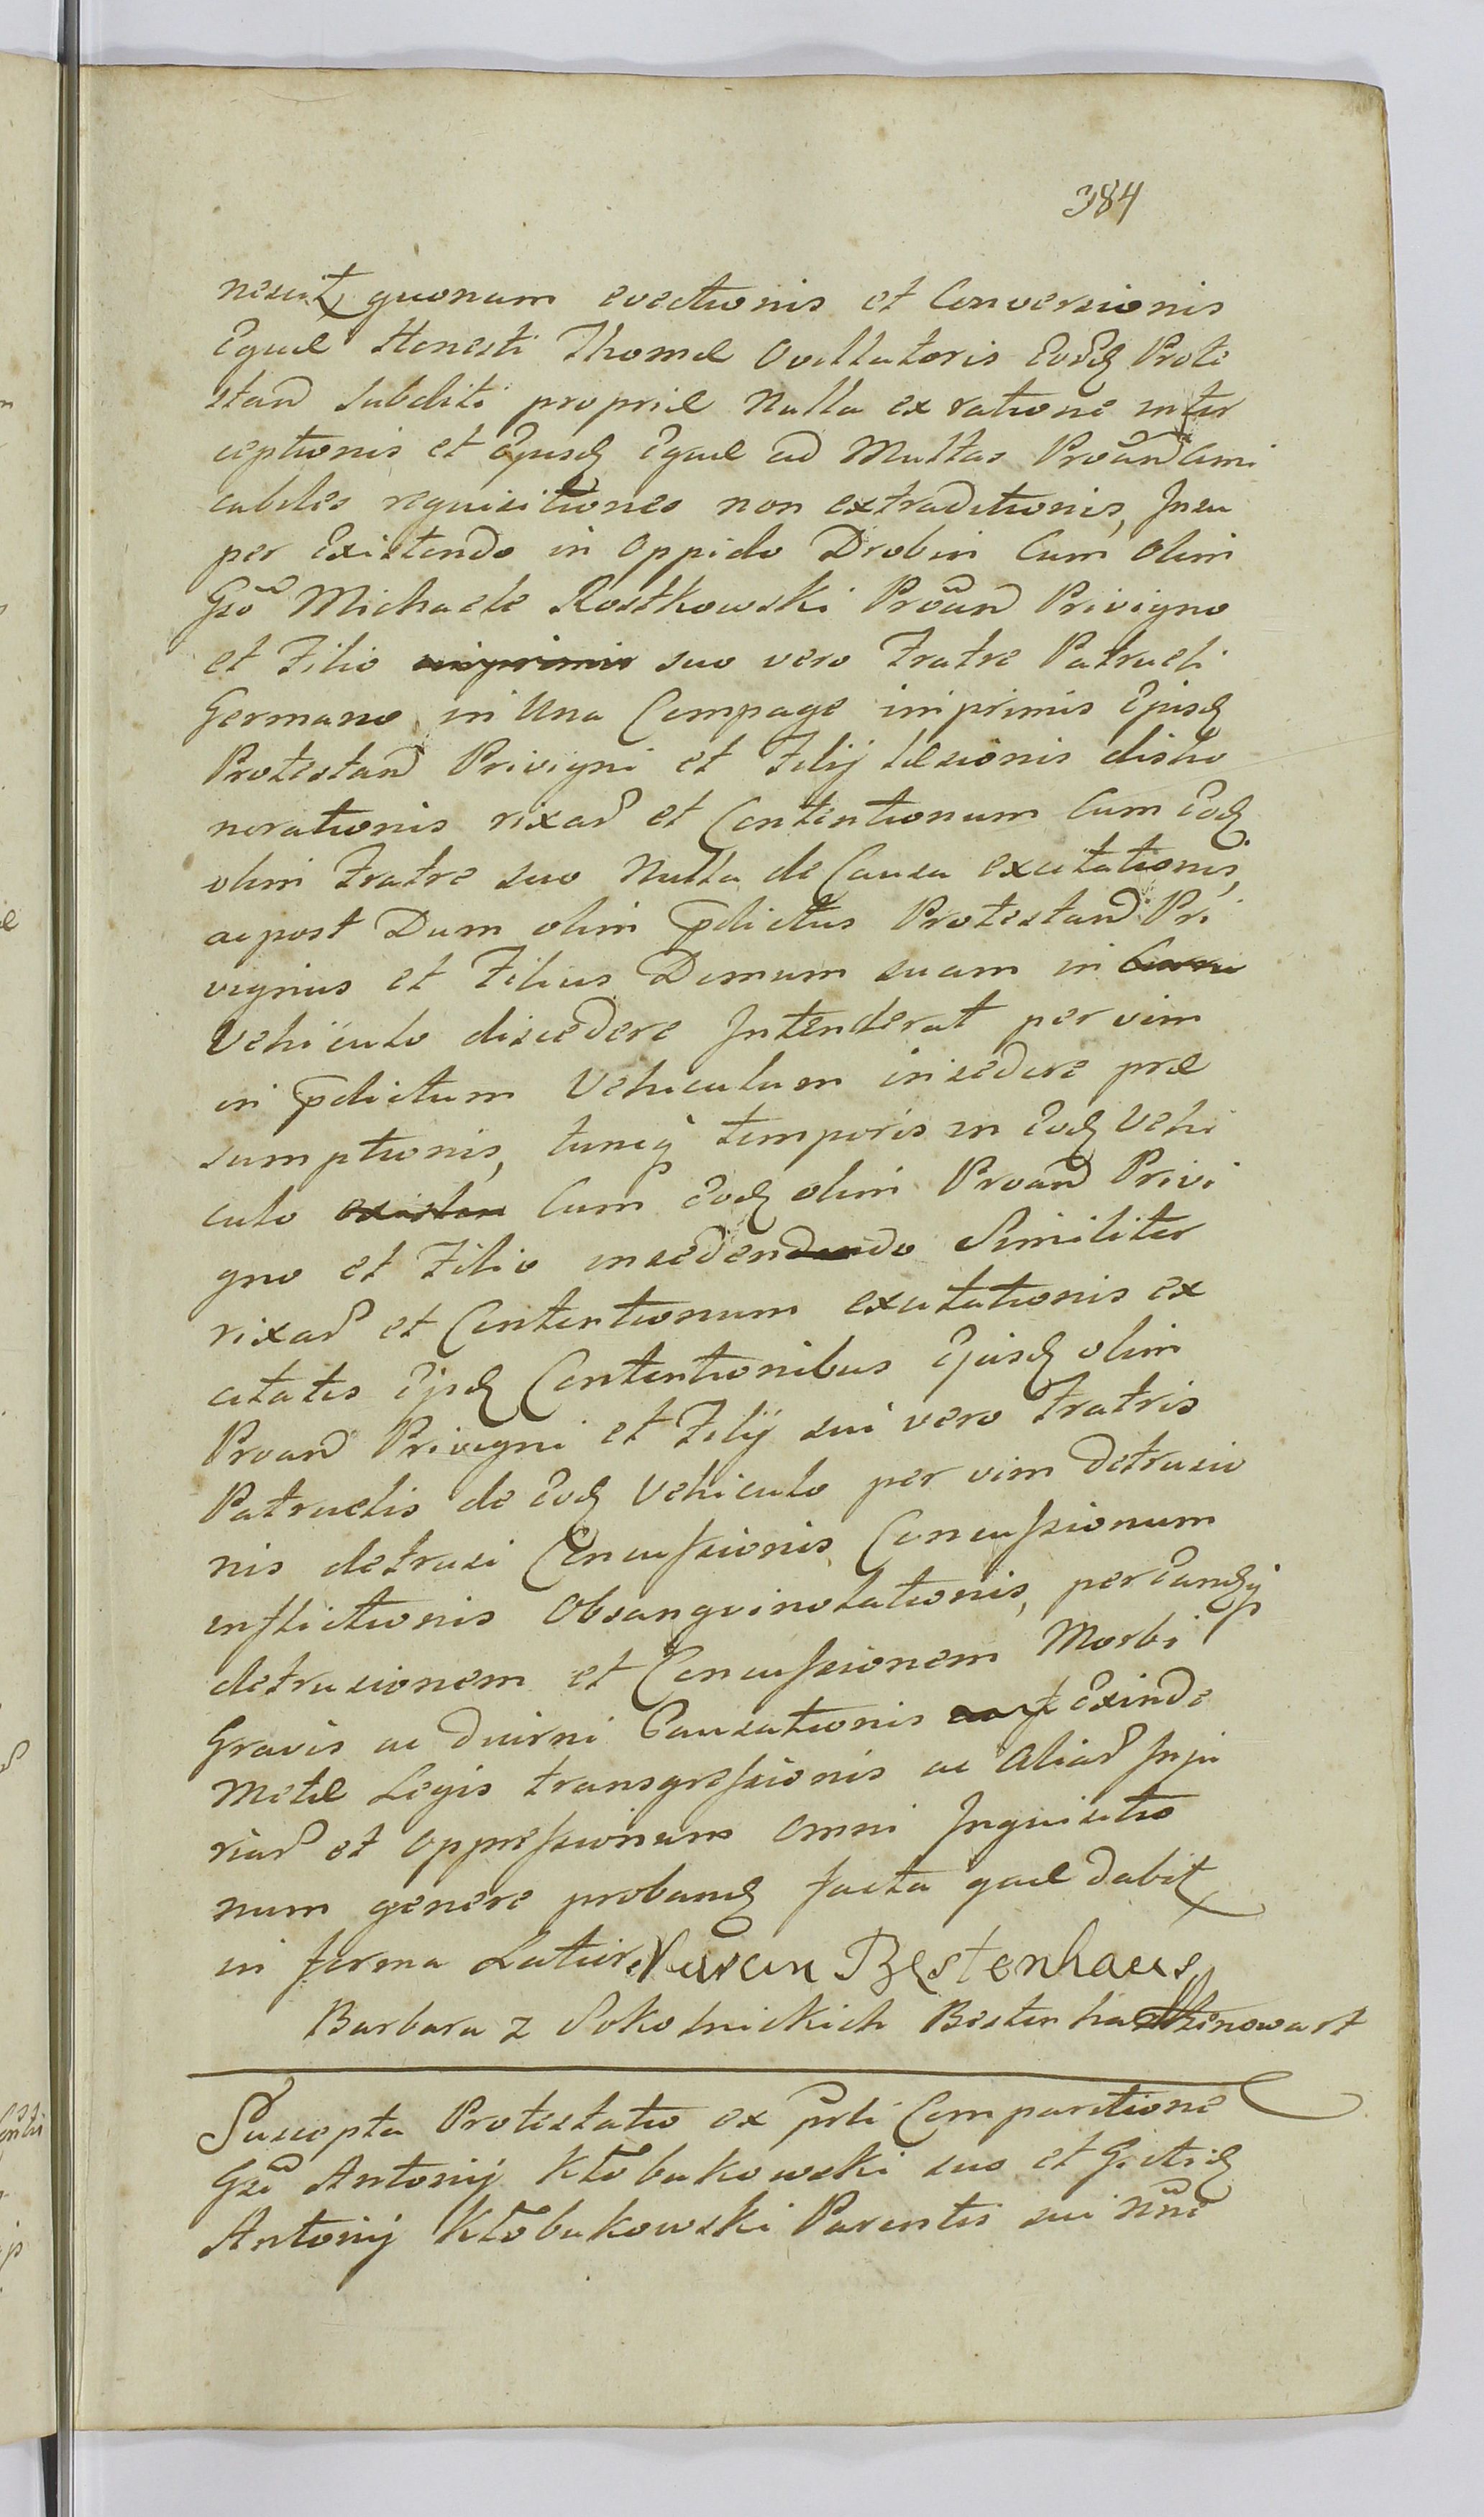 384
nescit quonam evectionis et Conversionis
Equæ Honesti Thomæ Ovellatoris Eosdq Prote
stand subditi propriæ Nulla ex ratione inter
ceptionis et Ejusdq Equæ ad Multas Proand Ami
cabiles requisitiones non extraditionis, Insu
per Existendo in Oppido Drobin Cum olim
Gso Michaele Rostkowski Proand Privigno
et Filio imprimis suo vero Fratre Patrueli
Germano in Una Compage imprimis Ejusdq
Protestand Privigni et Filij læsionis disho
norationis rixar et Contentionum Cum Eodq
olim Fratre suo Nulla de Causa excitationis,
ac post Dum olim pdictus Protestand Pri
vignus et Filius Domum suam in
Vehiculo discedere Intenderat per vim
in pdictum Vehiculum insedere præ
sumptionis, tuncq temporis in Eodq Vehi
culo existen Cum Eodq olim Proand Privi
gno et Filio insedendo Similiter
rixar et Contentionum excitationis ex
citatis Ijsdq Contentionibus Ejusdq olim
Proand Privigni et Filij sui vero Fratris
Patruelis de Eodq Vehiculo per vim detrusio
nis detrusi Concussionis Concussionum
inflictionis Obsangvinolationis, per Eandq
detrusionem et Concussionem Morbi
Gravis ac diurni Causationis Exinde
Metæ Legis transgressionis ac Aliar Inju
riar et oppressionum omni Inquisitio
num genere proband facta quæ dabit
in forma Latiore Bestenhaus
Barbara z Sokolnickich Bestenha
Suscepta Protestatio ex prli Comparitione
Gsi Antonij Kłobukowski suo et Gsi itidq
Antonij Kłobukowski Parentis sui nne